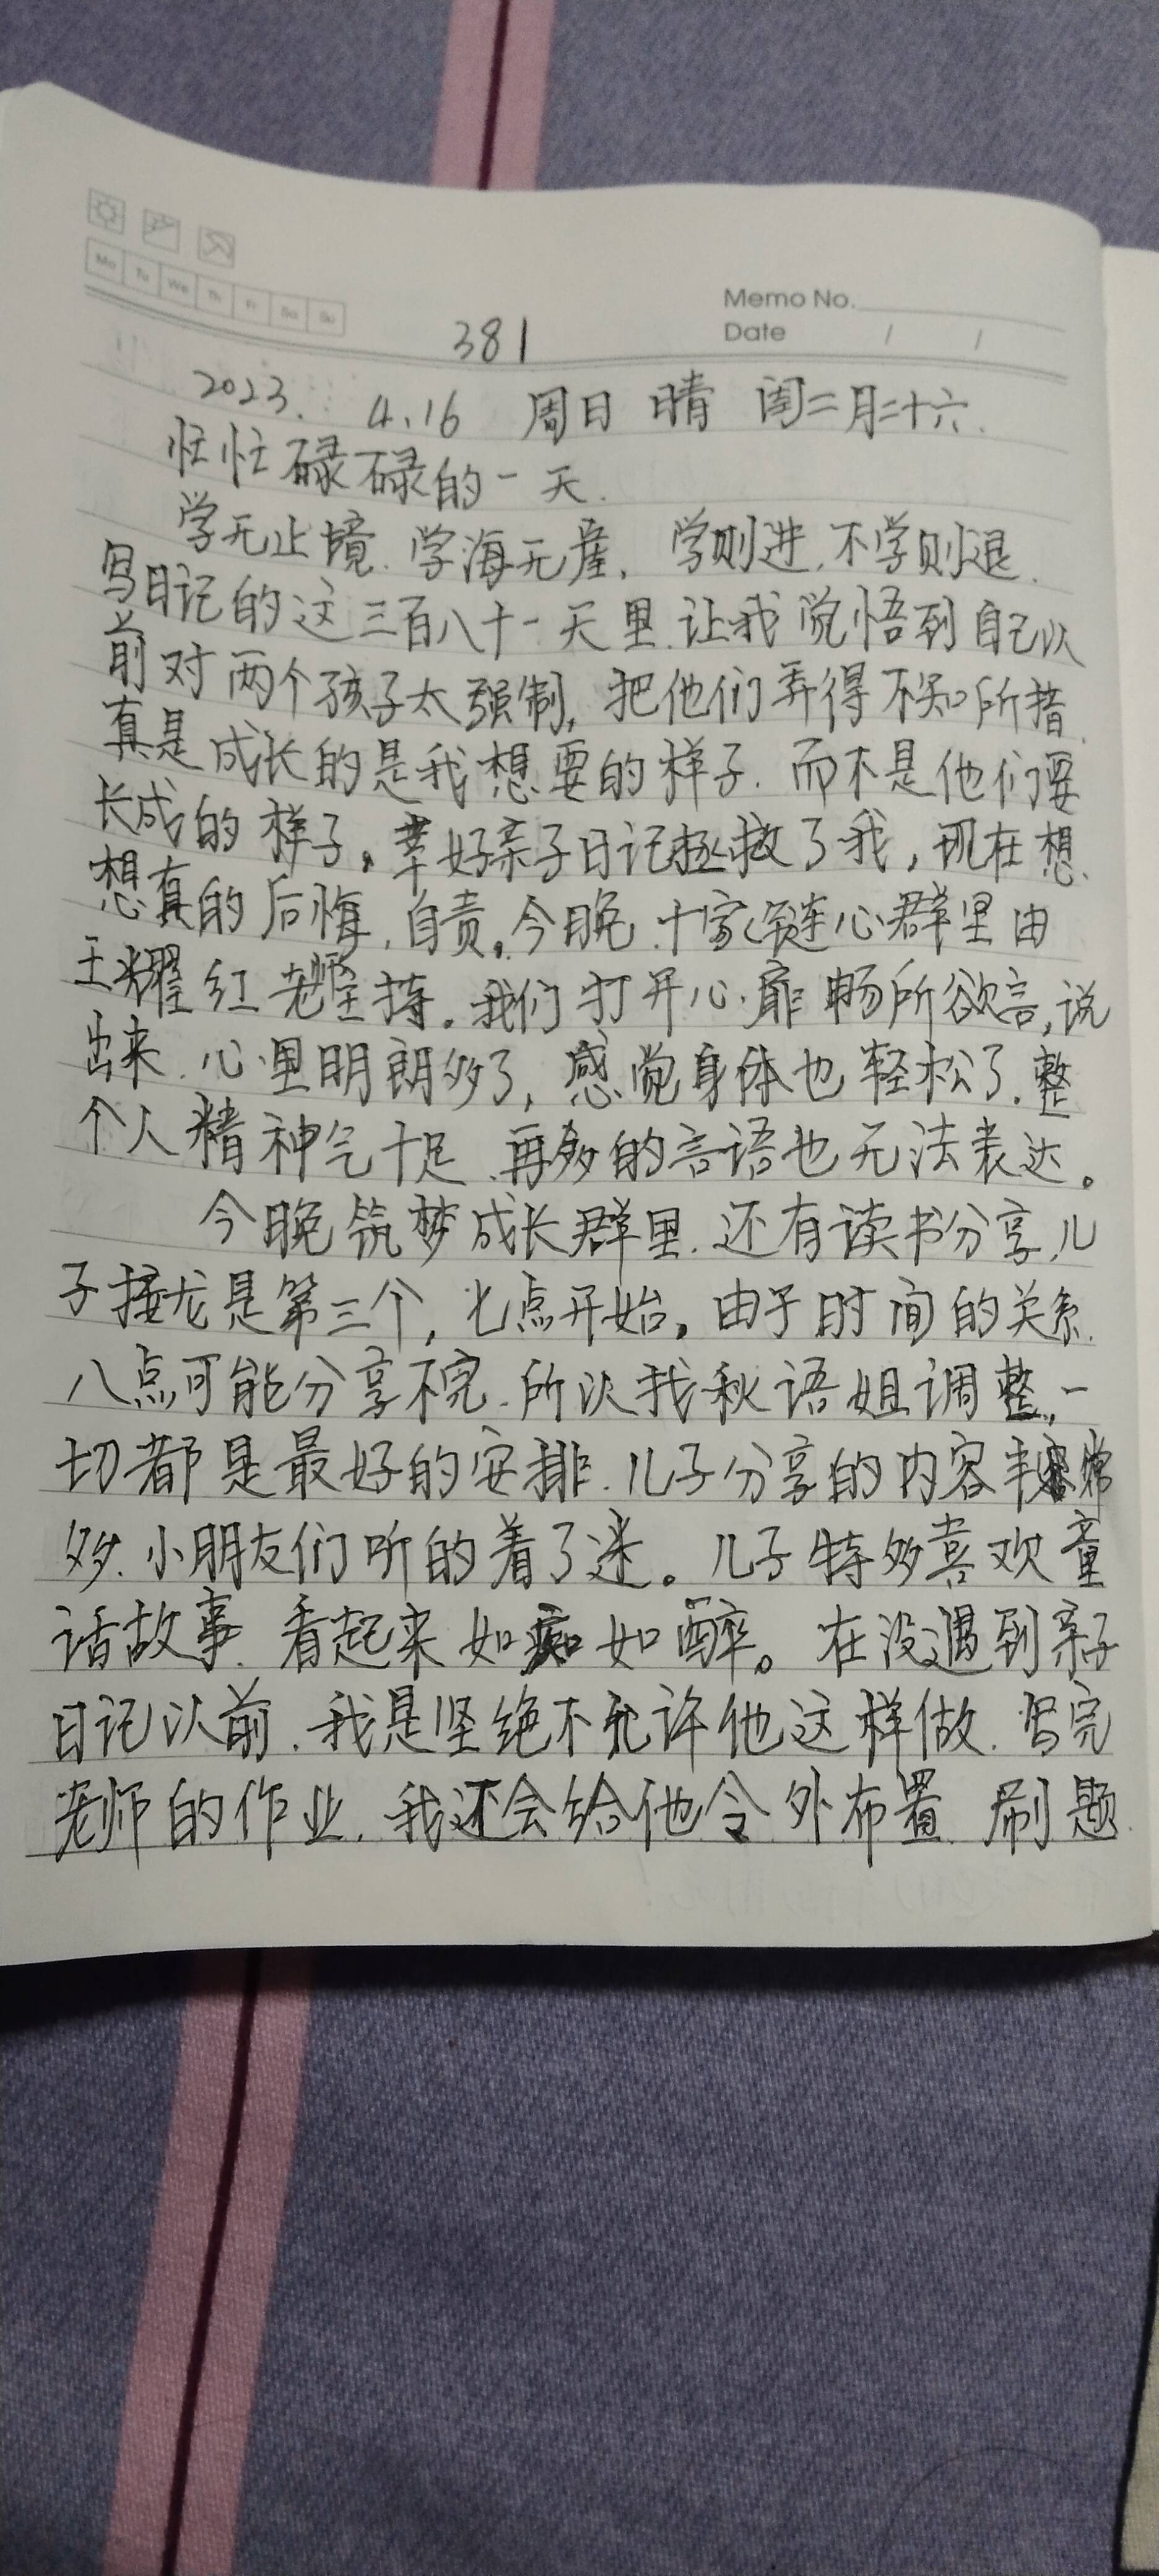 Mo Tu We Th Fr Sa Su
Memo No.
Date / /
381
2023. 4.16 周日 晴 闰二月二十六.
忙忙碌碌的一天.
学无止境.学海无崖,学则进,不学则退.
写日记的这三百八十一天里.让我觉悟到自己以
前对两个孩子太强制,把他们弄得不知所措.
真是成长的是我想要的样子.而不是他们要
长成的样子。幸好亲子日记拯救了我,现在想
想真的后悔,自责。今晚十家链心群里由
王耀红老师主持。我们打开心扉畅所欲言,说
出来.心里明朗多了,感觉身体也轻松了.整
个人精神气十足.再多的言语也无法表达。
今晚筑梦成长群里.还有读书分享,儿
子接龙是第三个,七点开始。由于时间的关系.
八点可能分享不完.所以找秋语姐调整,一
切都是最好的安排.儿子分享的内容非常
多.小朋友们听的着了迷。儿子特多喜欢童
话故事.看起来如痴如醉。在没遇到亲子
日记以前.我是坚绝不允许他这样做.写完
老师的作业.我还会给他令外布置.刷题.